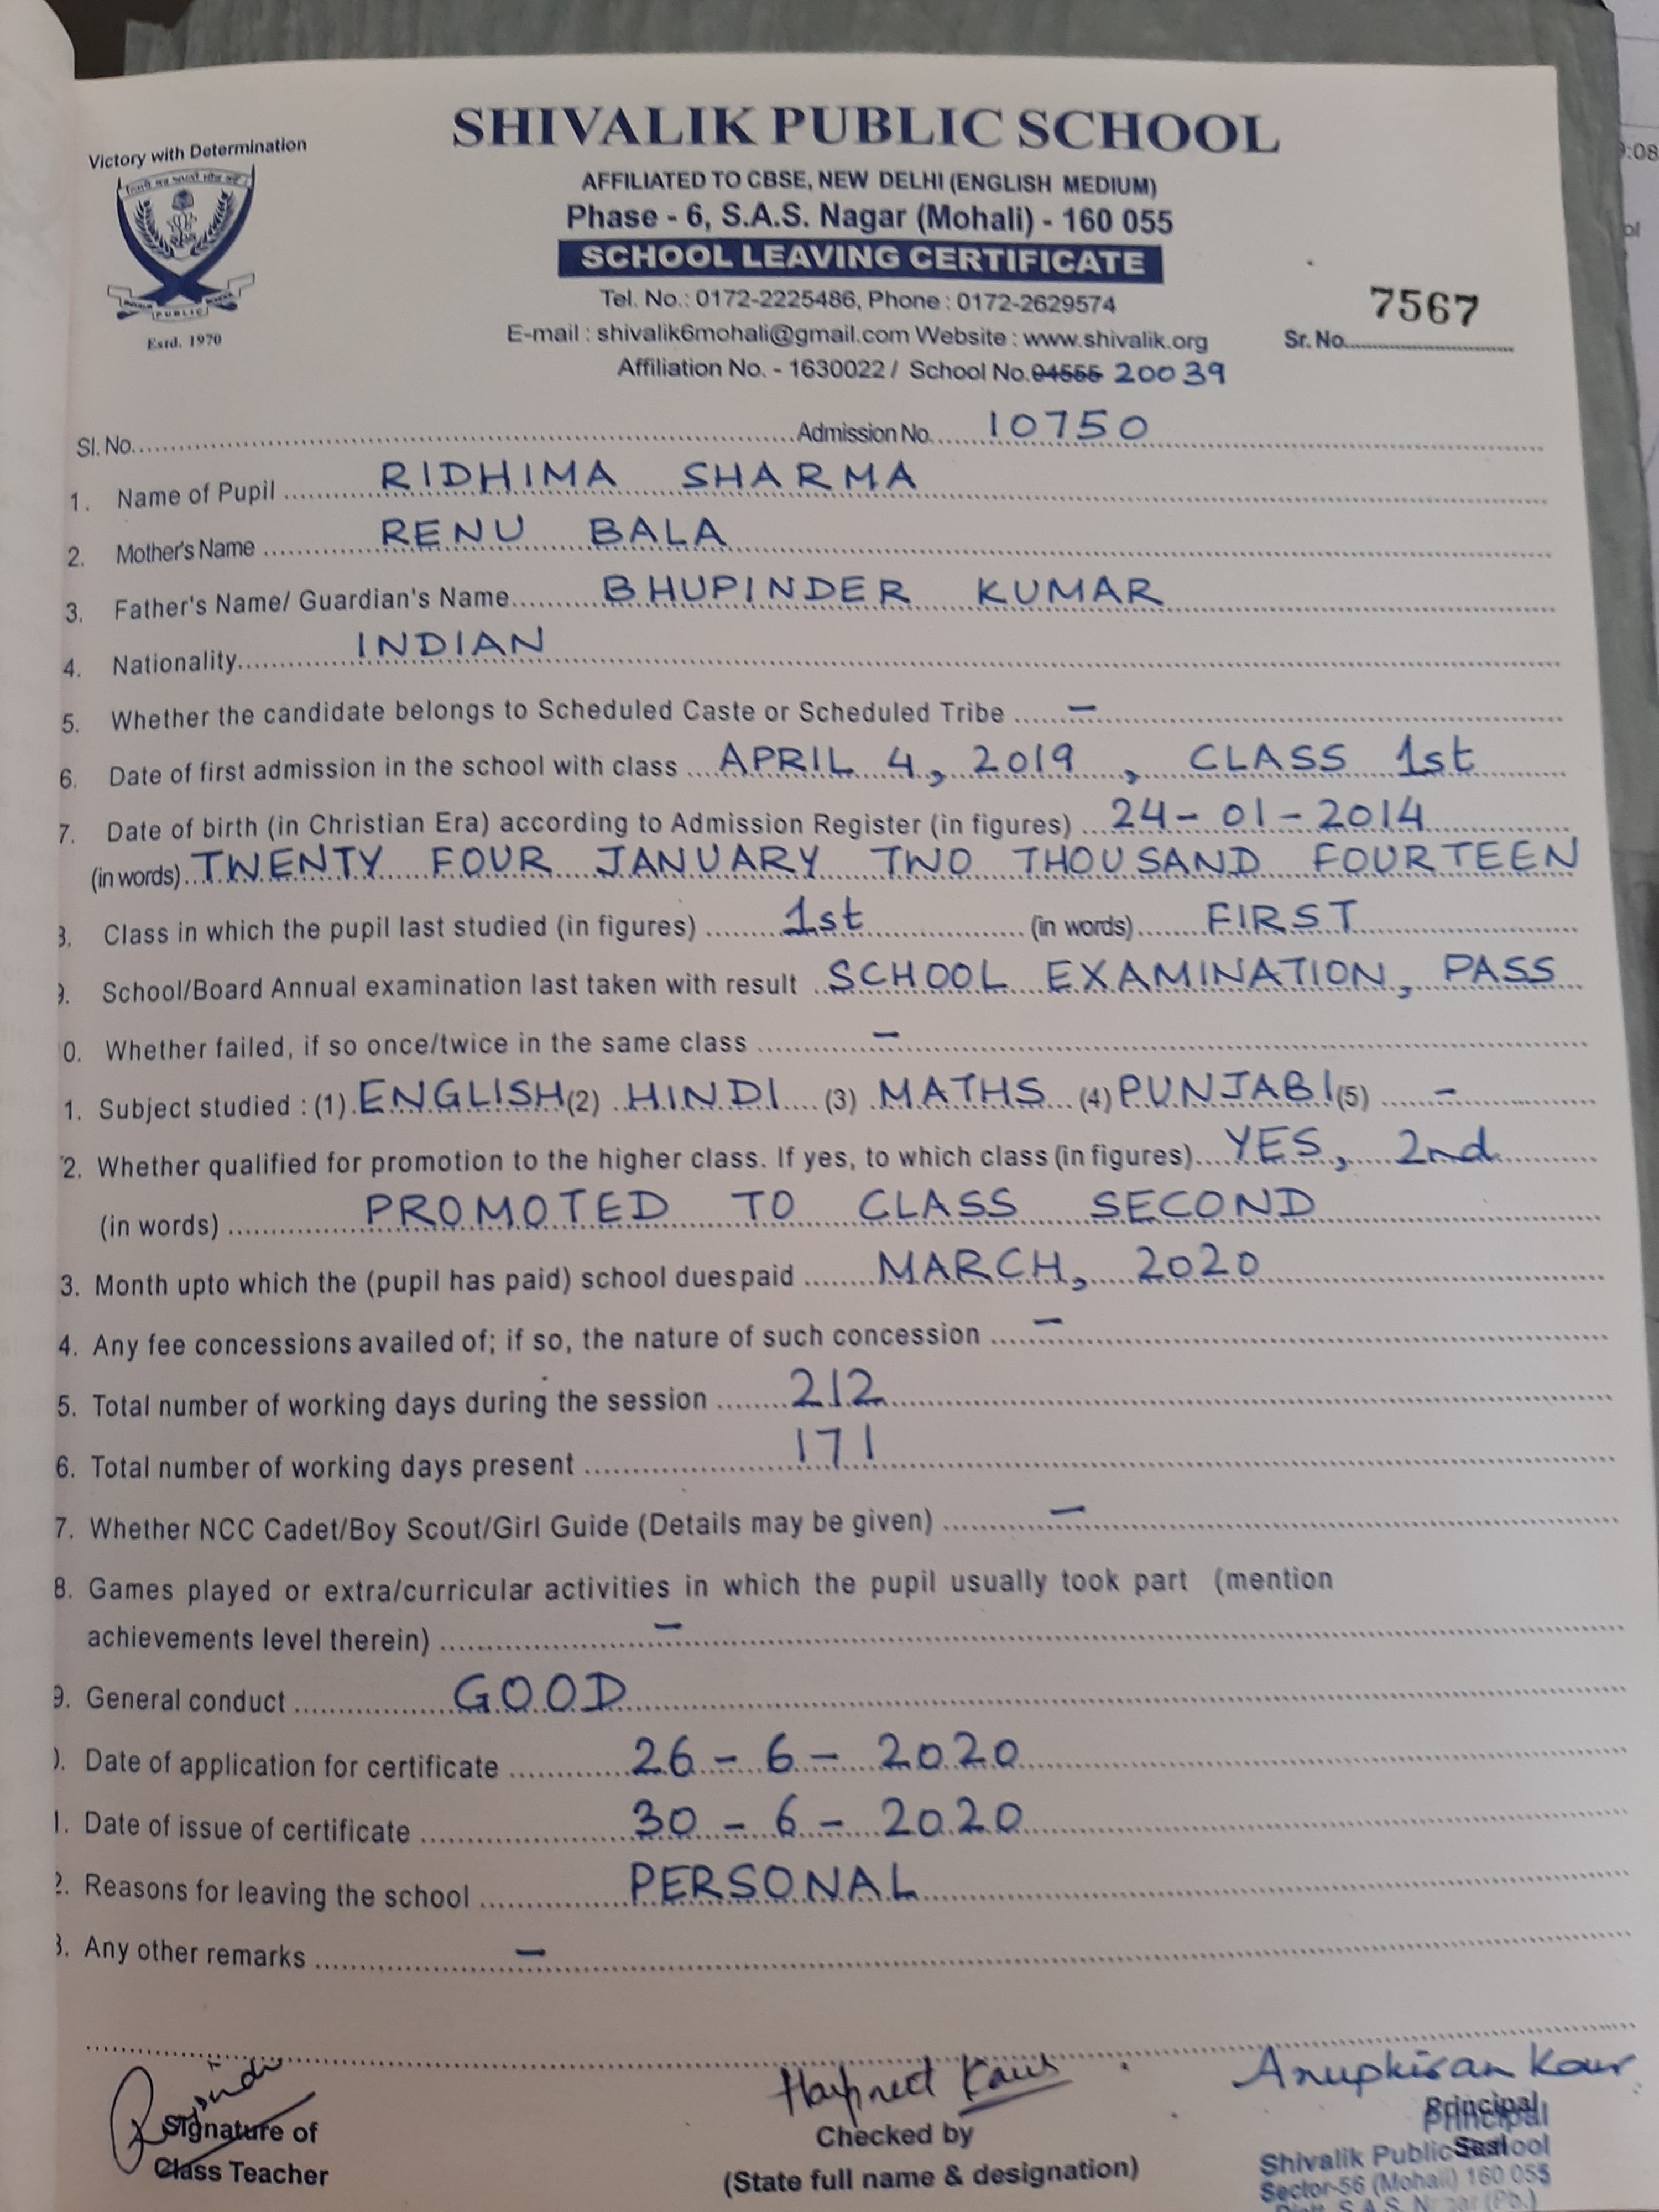 Victory with Determination
SHIVALIK PUBLIC SCHOOL
AFFILIATED TO CBSE, NEW DELHI (ENGLISH MEDIUM)
Phase - 6, S.A.S. Nagar (Mohali) - 160 055
SCHOOL LEAVING CERTIFICATE
Tel. No.: 0172-2225486, Phone : 0172-2629574
E-mail : shivalik6mohali@gmail.com Website : www.shivalik.org
Affiliation No. - 1630022 / School No. 04555 20039
PUBLIC
Estd. 1970
7567
Sr. No.
Sl. No. Admission No. 10750
1. Name of Pupil RIDHIMA SHARMA
2. Mother's Name RENU BALA
3. Father's Name/ Guardian's Name BHUPINDER KUMAR
4. Nationality INDIAN
5. Whether the candidate belongs to Scheduled Caste or Scheduled Tribe –
6. Date of first admission in the school with class APRIL 4, 2019, CLASS 1st
7. Date of birth (in Christian Era) according to Admission Register (in figures) 24-01-2014
(in words) TWENTY FOUR JANUARY TWO THOUSAND FOURTEEN
8. Class in which the pupil last studied (in figures) 1st (in words) FIRST
9. School/Board Annual examination last taken with result SCHOOL EXAMINATION, PASS
0. Whether failed, if so once/twice in the same class –
1. Subject studied : (1) ENGLISH (2) HINDI (3) MATHS (4) PUNJABI (5) –
2. Whether qualified for promotion to the higher class. If yes, to which class (in figures) YES, 2nd
(in words) PROMOTED TO CLASS SECOND
3. Month upto which the (pupil has paid) school duespaid MARCH, 2020
4. Any fee concessions availed of; if so, the nature of such concession –
5. Total number of working days during the session 212
6. Total number of working days present 171
7. Whether NCC Cadet/Boy Scout/Girl Guide (Details may be given) –
8. Games played or extra/curricular activities in which the pupil usually took part (mention
achievements level therein) –
9. General conduct GOOD
0. Date of application for certificate 26-6-2020
1. Date of issue of certificate 30-6-2020
2. Reasons for leaving the school PERSONAL
3. Any other remarks –
Harpreet Kaur
Anupkiran Kaur
Signature of
Class Teacher
Checked by
(State full name & designation)
Principal
Principal
Seal
Shivalik Public School
Sector-56 (Mohali) 160 055
Distt. S.A.S. Nagar (Pb.)